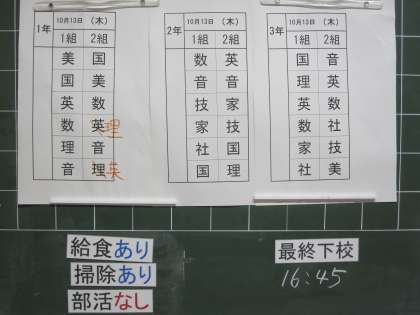 1年 10月13日 (木)
1組 2組
美 国
国 美
英 数
数 英 理
理 音
音 理 英
2年 10月13日 (木)
1組 2組
数 英
音 音
技 家
家 技
社 国
国 理
3年 10月13日 (木)
1組 2組
国 音
理 英
英 数
数 社
家 技
社 美
給食あり
掃除あり
部活なし
最終下校
16:45